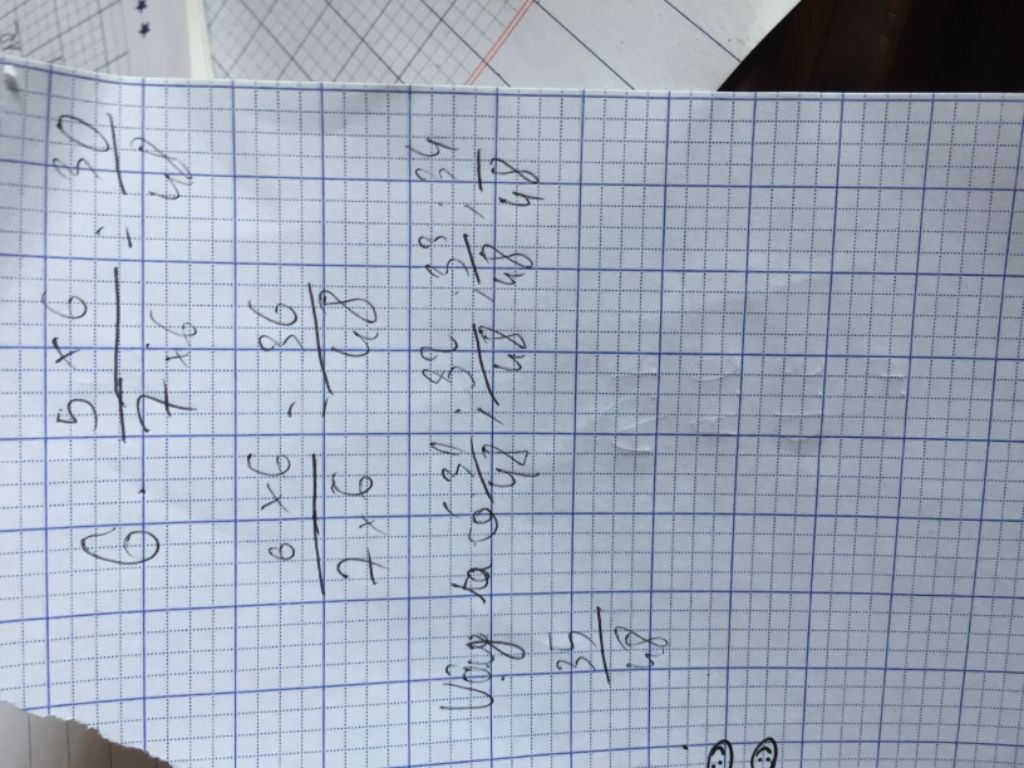 6. 5 × 6 / 7 × 6 = 30 / 48
6 × 6 / 7 × 6 = 36 / 48
Vậy ta có 31 / 48 ; 32 / 48 ; 33 / 48 ; 34 / 48
35 / 48